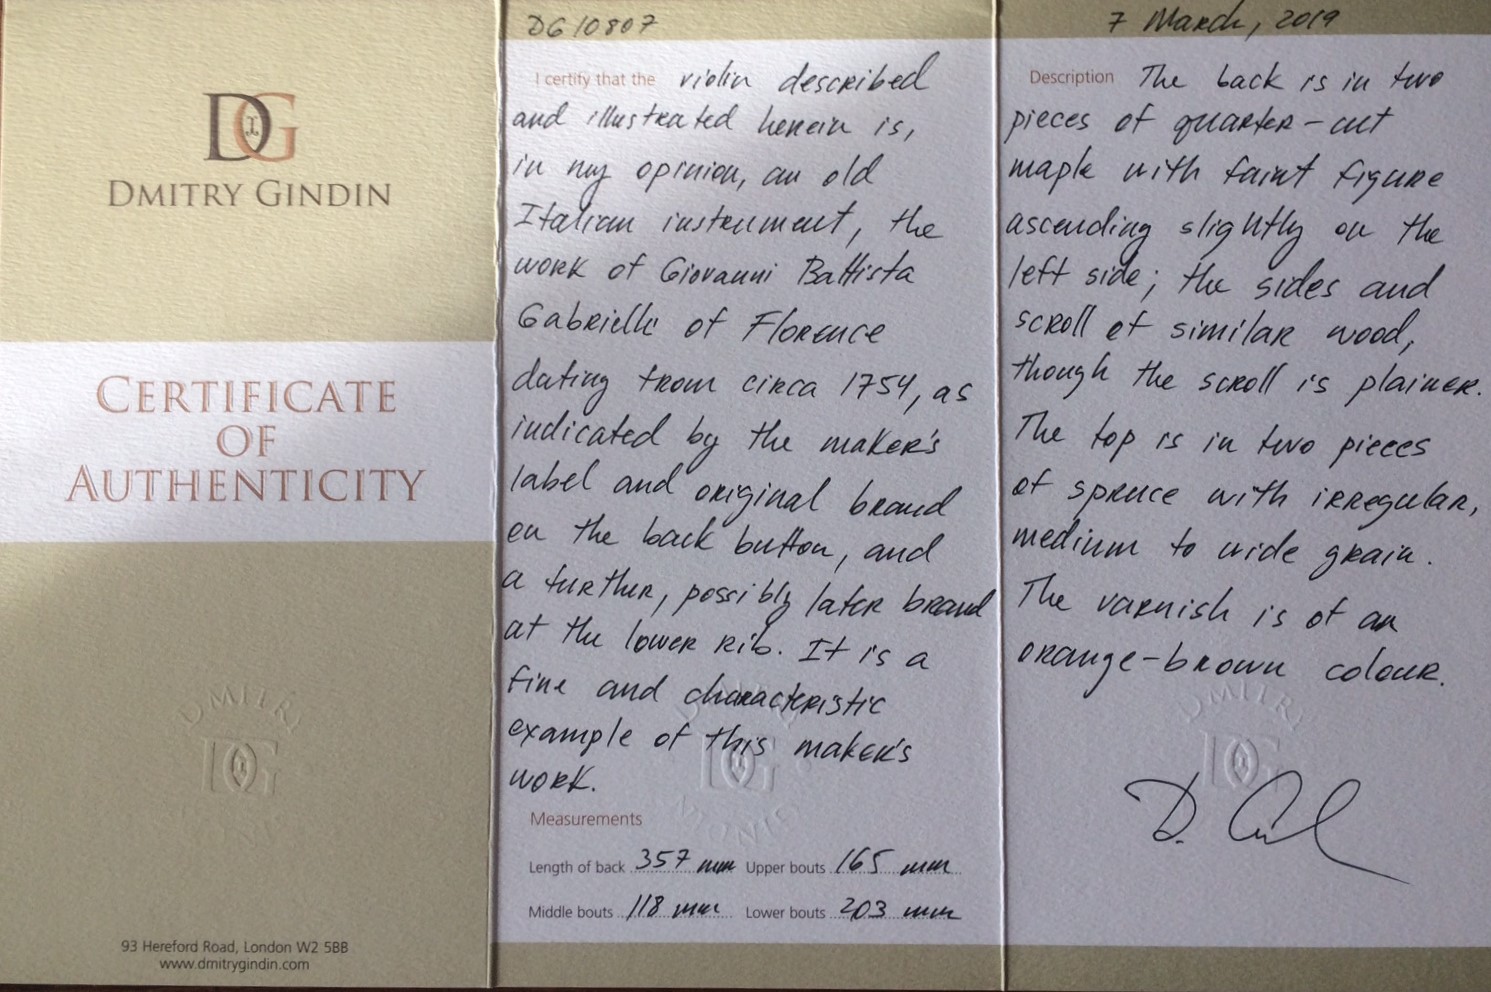 DG
DMITRY GINDIN
CERTIFICATE
OF
AUTHENTICITY
DMITRY
DG
GINDIN
93 Hereford Road, London W2 5BB
www.dmitrygindin.com
DG10807
I certify that the violin described
and illustrated herein is,
in my opinion, an old
Italian instrument, the
work of Giovanni Battista
Gabrielli of Florence
dating from circa 1754, as
indicated by the maker's
label and original brand
on the back button, and
a further, possibly later brand
at the lower rib. It is a
fine and characteristic
example of this maker's
work.
DG
GINDIN
Measurements
Length of back 357 mm Upper bouts 165 mm
Middle bouts 118 mm Lower bouts 203 mm
7 March, 2019
Description The back is in two
pieces of quarter-cut
maple with faint figure
ascending slightly on the
left side; the sides and
scroll of similar wood,
though the scroll is plainer.
The top is in two pieces
of spruce with irregular,
medium to wide grain.
The varnish is of an
orange-brown colour.
DMITRY
DG